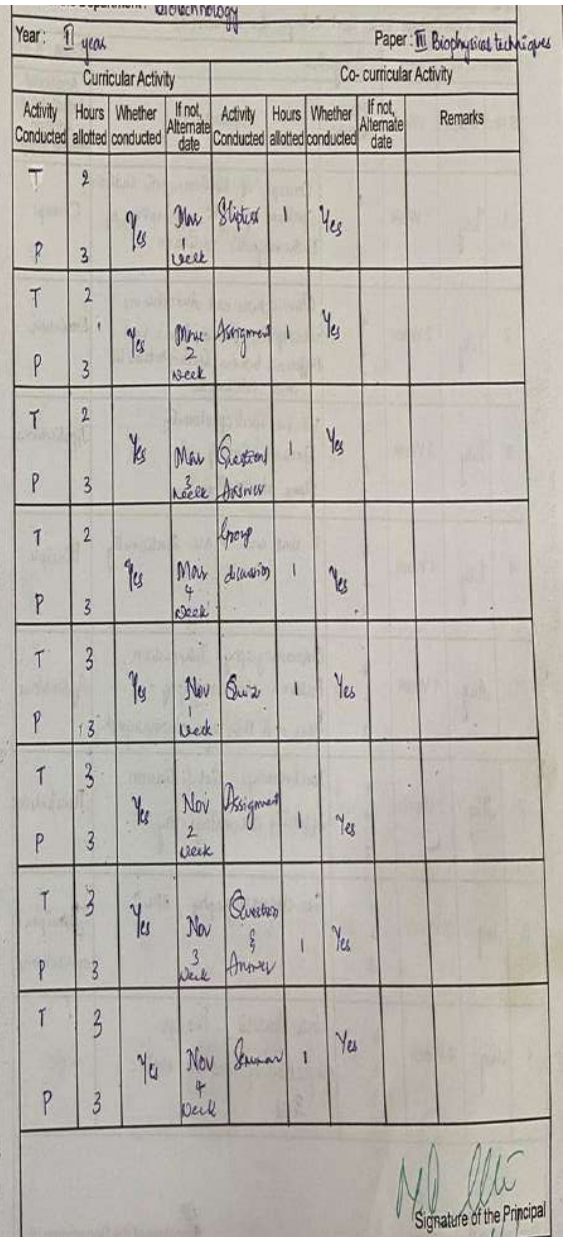 Department: Biotechnology
Year: II year Paper: III Biophysical techniques
Curricular Activity Co- curricular Activity
Activity Conducted Hours allotted Whether conducted If not, Alternate date Activity Conducted Hours allotted Whether conducted If not, Alternate date Remarks
T 2
Yes week Sliptest 1 Yes
P 3
T 2
Yes 2 week Assignment 1 Yes
P 3
T 2
Yes Mar 3 week Question Answer 1 Yes
P 3
T 2
Yes Mar 4 week Group discussion 1 Yes
P 3
T 3
Yes Nov 1 week Quiz 1 Yes
P 3
T 3
Yes Nov 2 week Assignment 1 Yes
P 3
T 3
Yes Nov 3 week Question & Answer 1 Yes
P 3
T 3
Yes Nov 4 week Seminar 1 Yes
P 3
Signature of the Principal